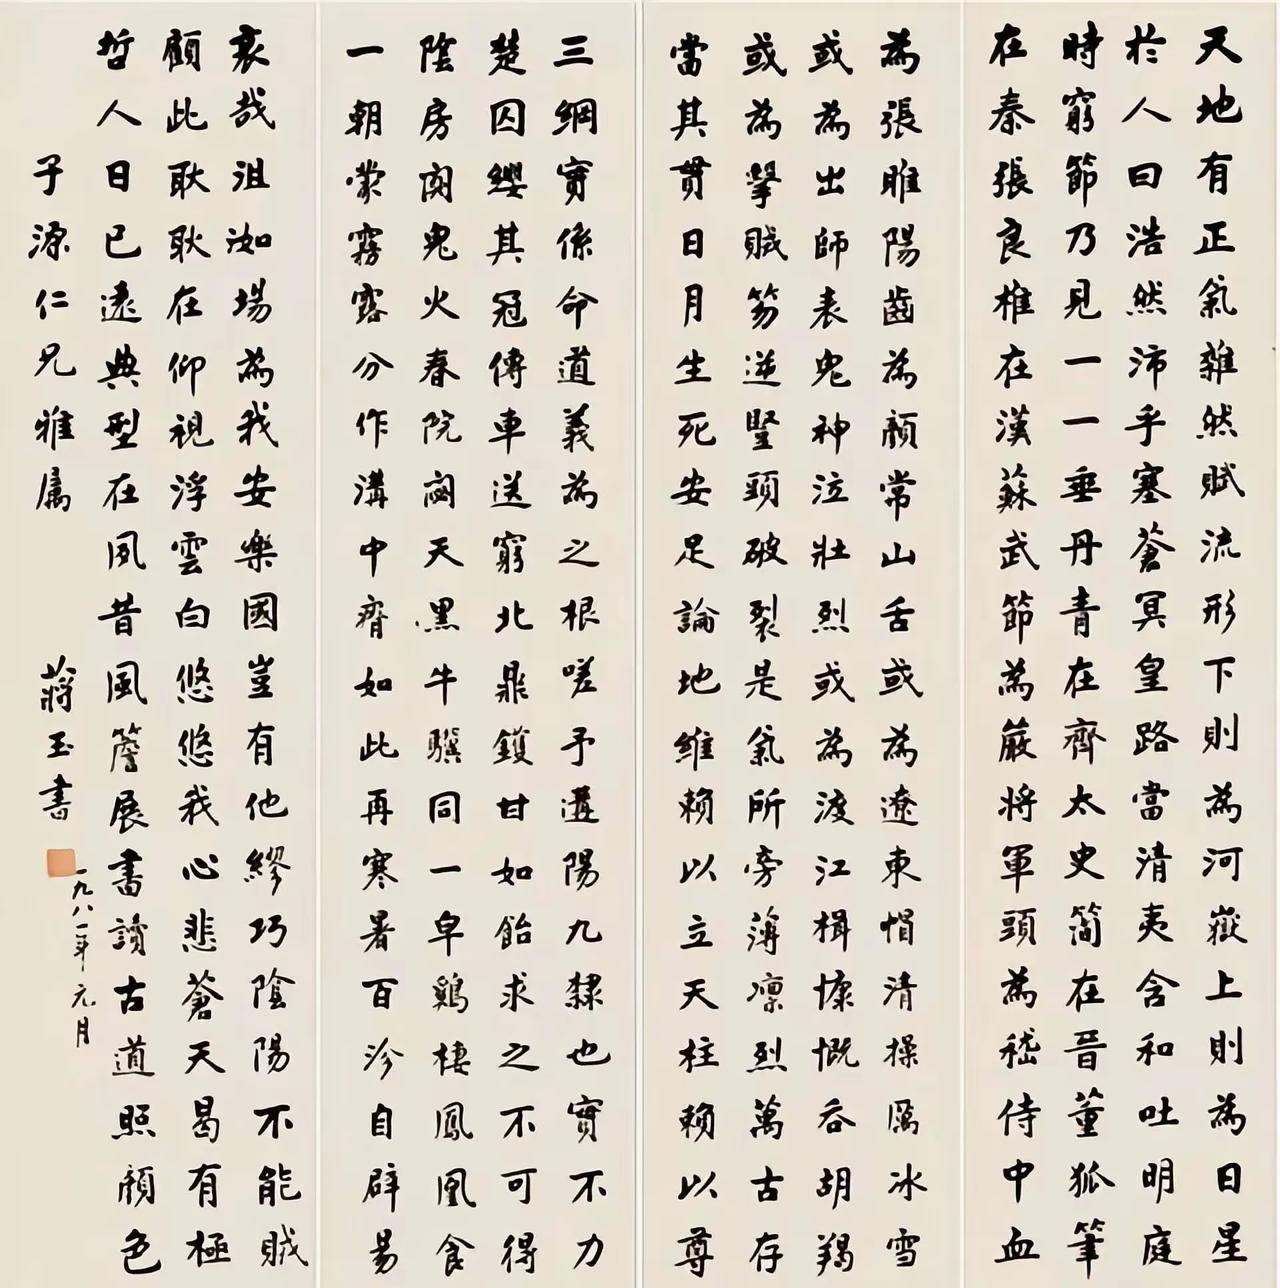 天地有正氣雜然賦流形下則為河嶽上則為日星
於人曰浩然沛乎塞蒼冥皇路當清夷含和吐明庭
時窮節乃見一一垂丹青在齊太史简在晉董狐筆
在秦張良椎在漢蘇武節為嚴將軍頭為嵇侍中血
為張睢陽齒為顏常山舌或為遼東帽清操厲冰雪
或為出師表鬼神泣壯烈或為渡江楫慷慨吞胡羯
或為擊賊笏逆豎頭破裂是氣所旁薄凛烈萬古存
當其貫日月生死安足論地維賴以立天柱賴以尊
三綱實係命道義為之根嗟予遘陽九隸也實不力
楚囚纓其冠傳車送窮北鼎鑊甘如飴求之不可得
陰房闃鬼火春院閟天黑牛驥同一皁鷄棲鳳凰食
一朝蒙霧露分作溝中瘠如此再寒暑百沴自辟易
哀哉沮洳場為我安樂國豈有他繆巧陰陽不能賊
顧此耿耿在仰視浮雲白悠悠我心悲蒼天曷有極
哲人日已遠典型在夙昔風簷展書讀古道照顏色
子源仁兄雅屬
蔣玉書
一九八一年元月